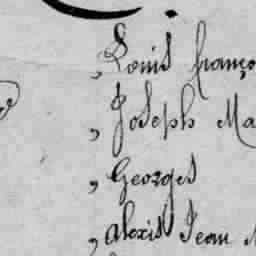 , Louis franço
, Joseph Ma
, Georges
, Alexis Jean